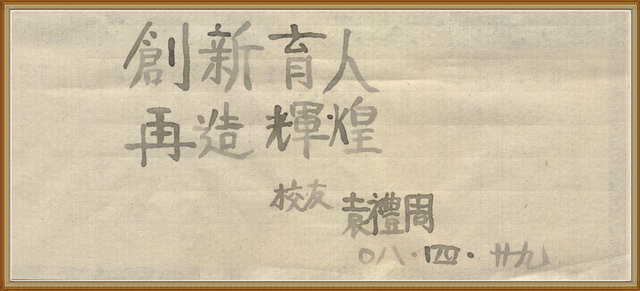 創新育人
再造輝煌
校友
袁禮周
〇八·四·廿九